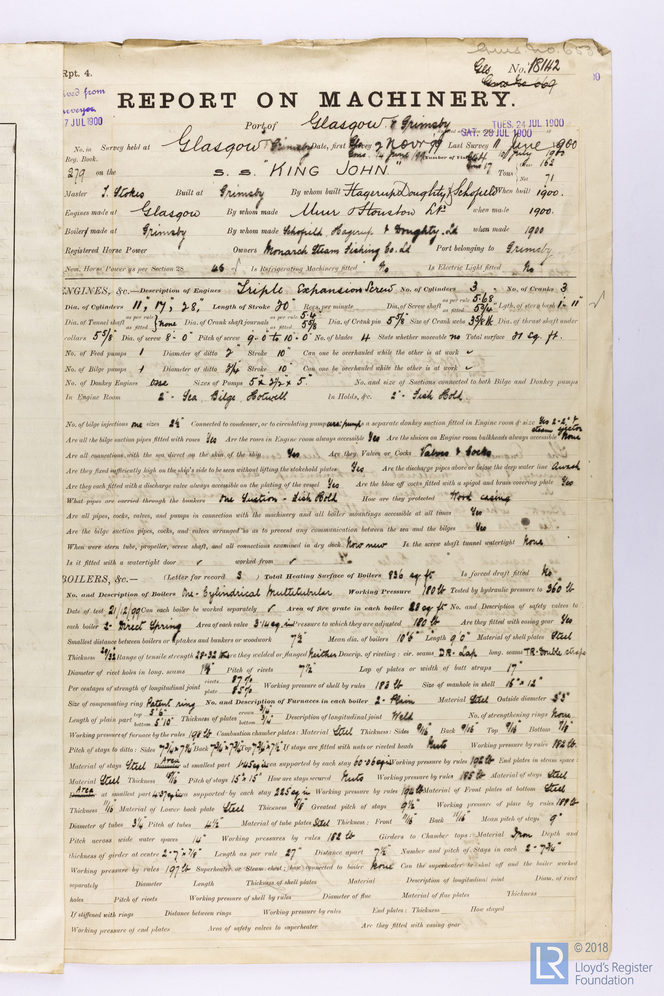 Rpt. 4.
No. 18142
REPORT ON MACHINERY.
7 JUL 1900
Port of Glasgow & Grimsby
TUES. 24 JUL 1900
SAT. 28 JUL 1900
No. in Survey held at Glasgow & Grimsby Date, first Survey Nov 99 Last Survey 11 June 1900
Reg. Book.
279 on the S.S. "KING JOHN" Tons 162
71
Master J. Stokes Built at Grimsby By whom built Hagerup Doughty & Schofield When built 1900.
Engines made at Glasgow By whom made Muir & Houston Ld when made 1900.
Boiler made at Grimsby By whom made Schofield Hagerup & Doughty Ld when made 1900
Registered Horse Power Owners Monarch Steam Fishing Co. Ld Port belonging to Grimsby
Nom. Horse Power as per Section 28 46 Is Refrigerating Machinery fitted No Is Electric Light fitted No
ENGINES, &c.—Description of Engines Triple Expansion Screw No. of Cylinders 3 No. of Cranks 3
Dia. of Cylinders 11", 17", 28" Length of Stroke 20" Revs. per minute Dia. of Screw shaft as per rule 5.68 as fitted 5 3/4 Lgth. of stern bush 1'-11"
Dia. of Tunnel shaft as per rule as fitted none Dia. of Crank shaft journals as per rule 5.4 as fitted 5 5/8 Dia. of Crank pin 5 5/8 Size of Crank webs Dia. of thrust shaft under
collars 5 5/8 Dia. of screw 8-0 Pitch of screw 9-0 to 10-0 No. of blades 4 State whether moveable no Total surface 21 sq. ft.
No. of Feed pumps 1 Diameter of ditto 2" Stroke 10" Can one be overhauled while the other is at work
No. of Bilge pumps 1 Diameter of ditto 2 1/4 Stroke 10" Can one be overhauled while the other is at work
No. of Donkey Engines One Sizes of Pumps 5" x 3 1/2 x 5" No. and size of Suctions connected to both Bilge and Donkey pumps
In Engine Room 2" - Sea, Bilge, Hotwell In Holds, &c. 2" - Fish Hold
No. of bilge injections one sizes 2 1/2 Connected to condenser, or to circulating pump a separate donkey suction fitted in Engine room & size Yes 2-2" & steam ejector
Are all the bilge suction pipes fitted with roses Yes Are the roses in Engine room always accessible Yes Are the sluices on Engine room bulkheads always accessible None
Are all connections with the sea direct on the skin of the ship Yes Are they Valves or Cocks Valves & Cocks
Are they fixed sufficiently high on the ship's side to be seen without lifting the stokehold plates Yes Are the discharge pipes above or below the deep water line Above
Are they each fitted with a discharge valve always accessible on the plating of the vessel Yes Are the blow off cocks fitted with a spigot and brass covering plate Yes
What pipes are carried through the bunkers One Suction - Fish Hold How are they protected Wood casing
Are all pipes, cocks, valves, and pumps in connection with the machinery and all boiler mountings accessible at all times Yes
Are the bilge suction pipes, cocks, and valves arranged so as to prevent any communication between the sea and the bilges Yes
When were stern tube, propeller, screw shaft, and all connections examined in dry dock Now new Is the screw shaft tunnel watertight None
Is it fitted with a watertight door worked from
BOILERS, &c.— (Letter for record 3) Total Heating Surface of Boilers 836 sq ft Is forced draft fitted No
No. and Description of Boilers One-Cylindrical Multitubular Working Pressure 180 lb Tested by hydraulic pressure to 360 lb
Date of test 21/12/99 Can each boiler be worked separately Area of fire grate in each boiler 28 sq ft No. and Description of safety valves to
each boiler 2 - Direct Spring Area of each valve 3.14 sq in Pressure to which they are adjusted 180 lb Are they fitted with easing gear Yes
Smallest distance between boilers or uptakes and bunkers or woodwork 7 1/2" Mean dia. of boilers 10'6" Length 9'0" Material of shell plates Steel
Thickness 29/32 Range of tensile strength 28-32 Are they welded or flanged Neither Descrip. of riveting: cir. seams DR-Lap long. seams TR-Double straps
Diameter of rivet holes in long. seams Pitch of rivets 7 1/2 Lap of plates or width of butt straps 17"
Per centages of strength of longitudinal joint rivets plate Working pressure of shell by rules 183 lb Size of manhole in shell 16" x 12"
Size of compensating ring Patent ring No. and Description of Furnaces in each boiler 2 - Plain Material Steel Outside diameter 3'3"
Length of plain part top 5'6" bottom 5'10" Thickness of plates crown 3/4 bottom 3/4 Description of longitudinal joint Weld No. of strengthening rings None
Working pressure of furnace by the rules Combustion chamber plates: Material Steel Thickness: Sides 9/16 Back 9/16 Top 9/16 Bottom 7/8
Pitch of stays to ditto: Sides Back Top If stays are fitted with nuts or riveted heads Nuts Working pressure by rules 182 lb
Material of stays Steel Area at smallest part Area supported by each stay Working pressure by rules End plates in steam space:
Material Steel Thickness Pitch of stays 15" x 15" How are stays secured Nuts Working pressure by rules 185 lb Material of stays Steel
Area at smallest part Area supported by each stay 225 sq in Working pressure by rules Material of Front plates at bottom Steel
Thickness 11/16 Material of Lower back plate Steel Thickness Greatest pitch of stays 9 1/2" Working pressure of plate by rules
Diameter of tubes 3 1/4 Pitch of tubes 4 1/2 Material of tube plates Steel Thickness: Front 11/16 Back 11/16 Mean pitch of stays 9"
Pitch across wide water spaces 14" Working pressures by rules 182 lb Girders to Chamber tops: Material Iron Depth and
thickness of girder at centre Length as per rule 27" Distance apart 7 1/2 Number and pitch of Stays in each 2 - 7 3/4"
Working pressure by rules 197 lb Superheater or Steam chest; how connected to boiler None Can the superheater be shut off and the boiler worked
separately Diameter Length Thickness of shell plates Material Description of longitudinal joint Diam. of rivet
holes Pitch of rivets Working pressure of shell by rules Diameter of flue Material of flue plates Thickness
If stiffened with rings Distance between rings Working pressure by rules End plates: Thickness How stayed
Working pressure of end plates Area of safety valves to superheater Are they fitted with easing gear
LR © 2018
Lloyd's Register
Foundation